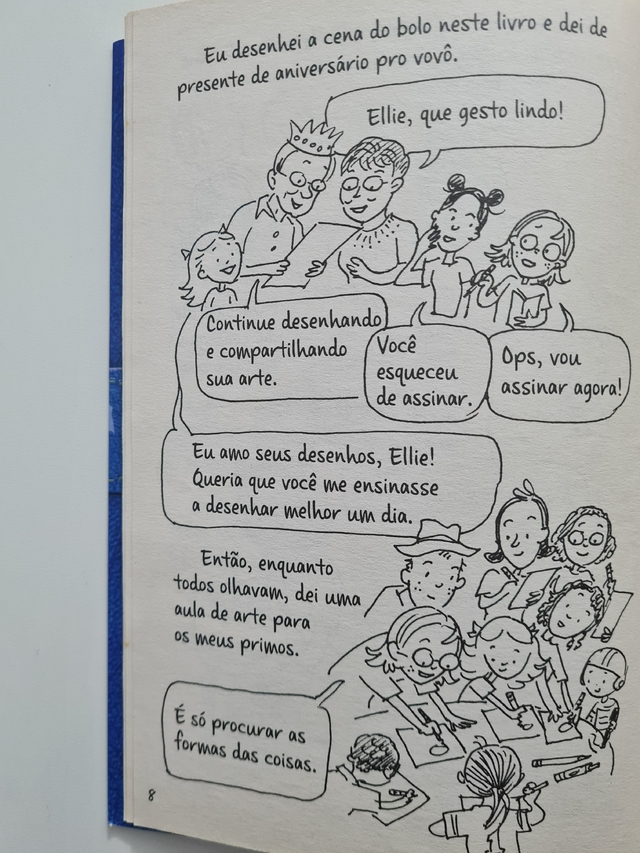 Eu desenhei a cena do bolo neste livro e dei de
presente de aniversário pro vovô.
Ellie, que gesto lindo!
Continue desenhando
e compartilhando
sua arte.
Você
esqueceu
de assinar.
Ops, vou
assinar agora!
Eu amo seus desenhos, Ellie!
Queria que você me ensinasse
a desenhar melhor um dia.
Então, enquanto
todos olhavam, dei uma
aula de arte para
os meus primos.
É só procurar as
formas das coisas.
8